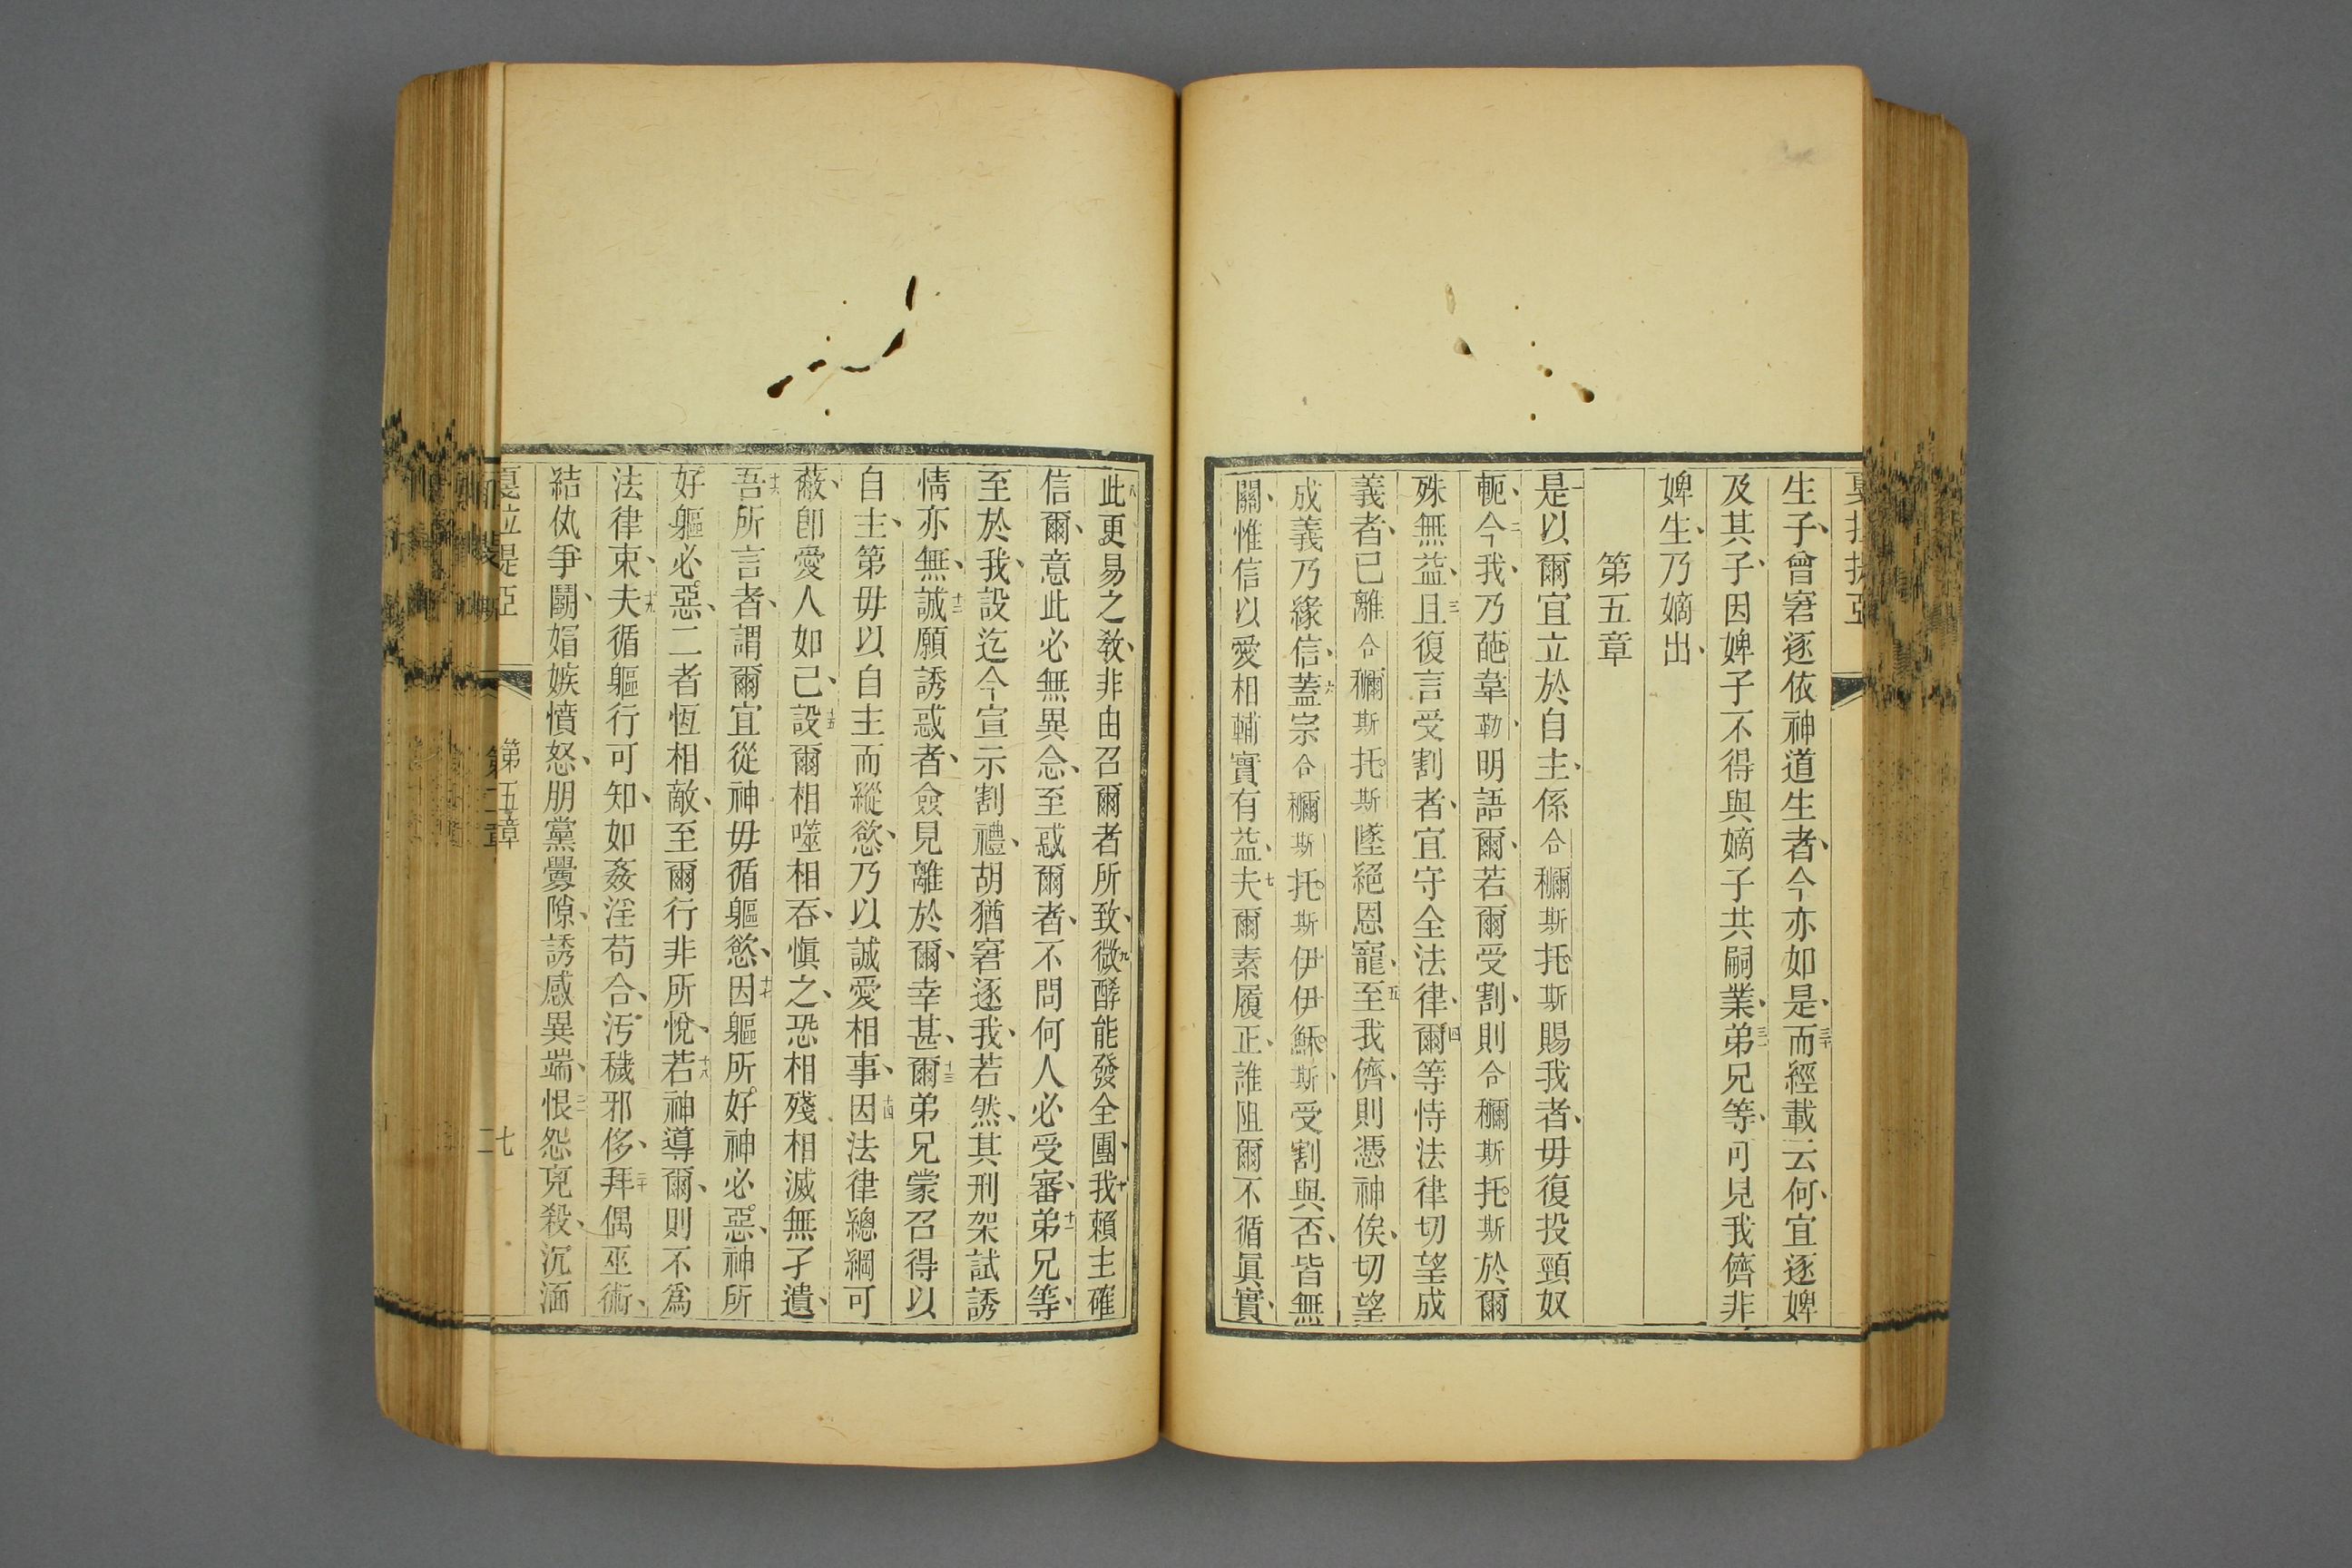 生子、曾窘逐依神道生者、今亦如是、三十而經載云何、宜逐婢
及其子、因婢子不得與嫡子共嗣業、三一弟兄等、可見我儕非
婢生、乃嫡出、
第五章
一是以爾宜立於自主、係合穪斯托斯賜我者、毋復投頸奴
軛、二今我、乃葩韋勒、明語爾、若爾受割、則合穪斯托斯於爾
殊無益、三且復言受割者、宜守全法律、四爾等恃法律切望成
義者、已離合穪斯托斯墜絕恩寵、五至我儕、則憑神俟、切望
成義乃緣信、六蓋宗合穪斯托斯伊伊穌斯、受割與否、皆無
關、惟信以愛相輔實有益、七夫爾素履正、誰阻爾不循眞實、
八此更易之敎、非由召爾者所致、九微酵能發全團、十我賴主確
信爾、意此必無異念、至惑爾者、不問何人必受審、十一弟兄等、
至於我、設迄今宣示割禮、胡猶窘逐我、若然、其刑架試誘
情亦無、十二誠願誘惑者、僉見離於爾、幸甚、十三爾弟兄蒙召得以
自主、第毋以自主而縱慾、乃以誠愛相事、十四因法律總綱可
蔽、卽愛人如己、十五設爾相噬相吞、愼之、恐相殘相滅無孑遺、
十六吾所言者、謂爾宜從神毋循軀慾、十七因軀所好神必惡、神所
好軀必惡、二者恆相敵、至爾行非所悅、十八若神導爾、則不爲
法律束、十九夫循軀行可知、如姦淫苟合、汚穢邪侈、二十拜偶巫術、
結仇爭鬭、媢嫉憤怒、朋黨釁隙、誘惑異端、二一恨怨兇殺、沉湎
第五章
七